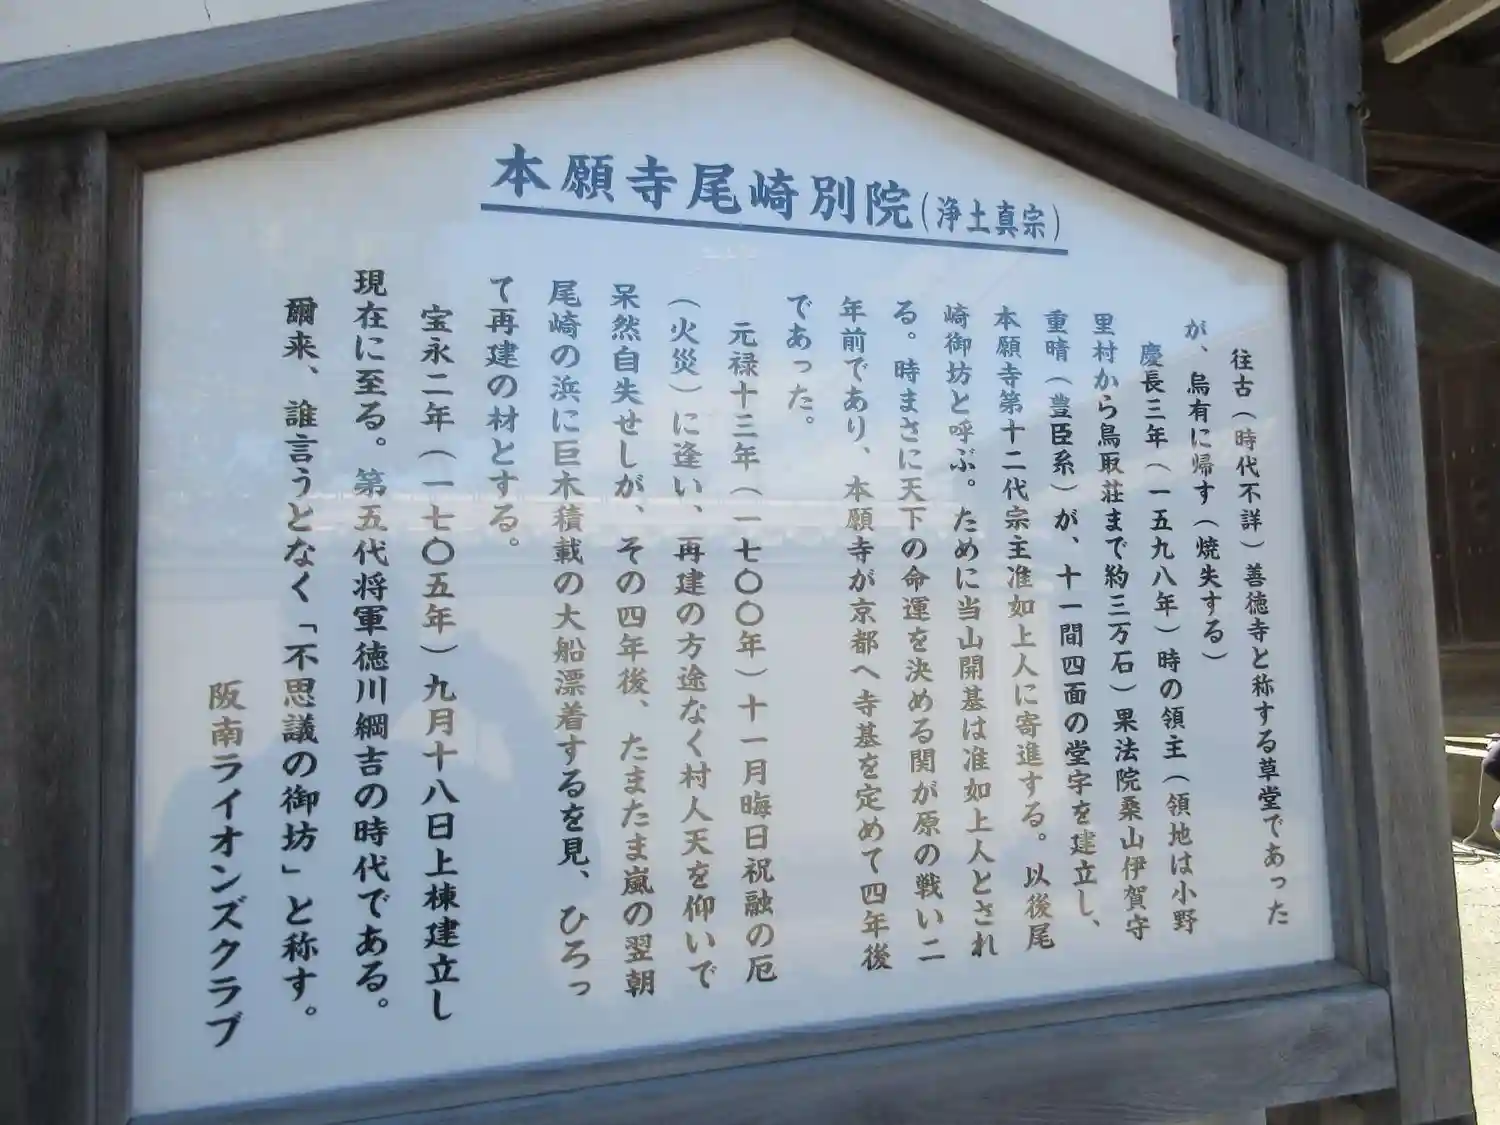 本願寺尾崎別院(浄土真宗)
往古(時代不詳)善徳寺と称する草堂であった
が、烏有に帰す(焼失する)
慶長三年(一五九八年)時の領主(領地は小野
里村から鳥取荘まで約三万石)果法院桑山伊賀守
重晴(豊臣系)が、十一間四面の堂字を建立し、
本願寺第十二代宗主准如上人に寄進する。以後尾
崎御坊と呼ぶ。ために当山開基は准如上人とされ
る。時まさに天下の命運を決める関が原の戦い二
年前であり、本願寺が京都へ寺基を定めて四年後
であった。
元禄十三年(一七〇〇年)十一月晦日祝融の厄
(火災)に逢い、再建の方途なく村人天を仰いで
呆然自失せしが、その四年後、たまたま嵐の翌朝
尾崎の浜に巨木積載の大船漂着するを見、ひろっ
て再建の材とする。
宝永二年(一七〇五年)九月十八日上棟建立し
現在に至る。第五代将軍徳川綱吉の時代である。
爾来、誰言うとなく「不思議の御坊」と称す。
阪南ライオンズクラブ